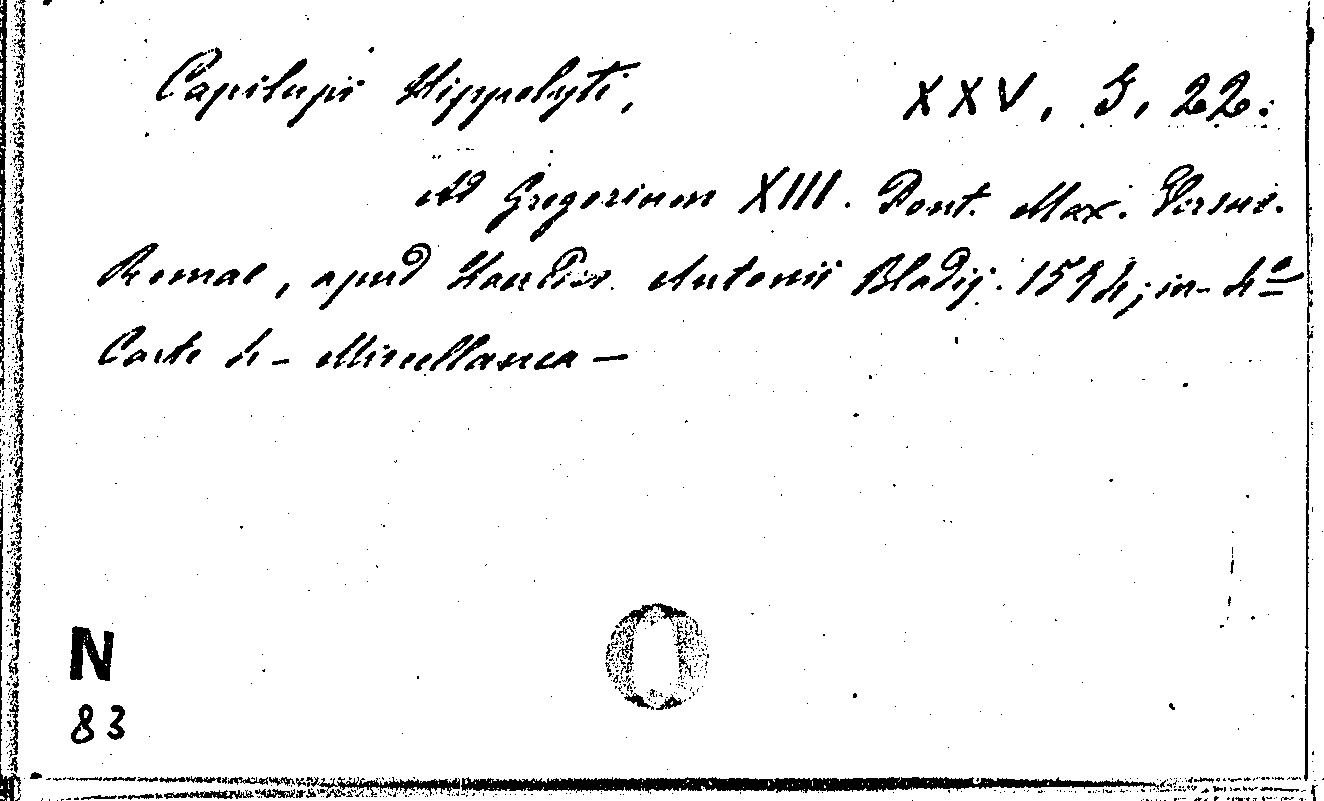 Capilupi Hippolyti, XXV. G. 22.
Ad Gregorium XIII. Pont. Max. Versus.
Romae, apud Haered. Antonii Bladij. 1574; in-4º
Carte 4 - Miscellanea -
N
83